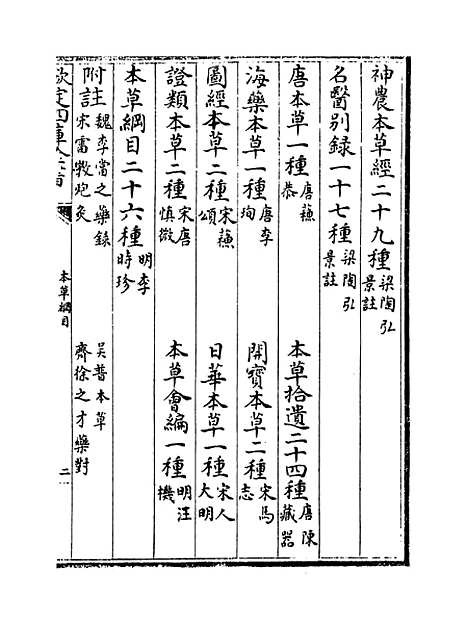 神農本草經二十九種梁陶弘景註
名醫别録一十七種梁陶弘景註
唐本草一種唐蘇恭　本草拾遺二十四種唐陳藏器
海藥本草一種唐李珣　開寳本草二種宋馬志
圖經本草二種宋蘇頌　日華本草一種宋人大明
證類本草二種宋唐慎微　本草會編一種明汪機
本草綱目二十六種明李時珍
附註魏李當之藥錄　吴普本草
宋雷斆炮炙　齊徐之才藥對
欽定四庫全書
本草綱目
二